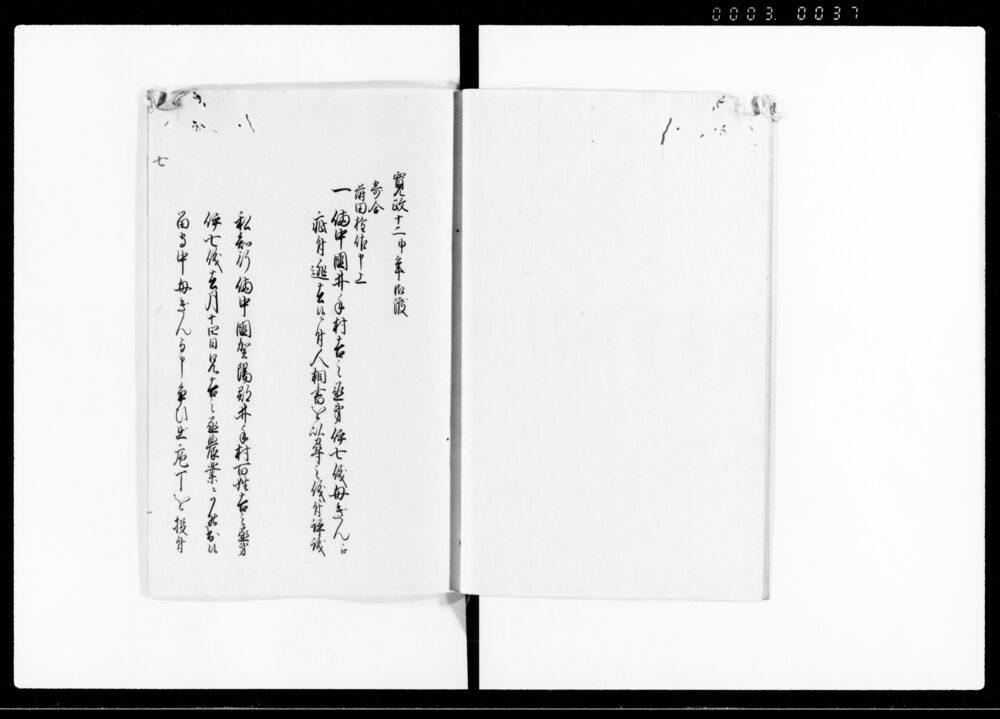 0003. 0037
寛政十二申年御渡
寄合
前田権佐申上
一 備中國井手村吉之丞弟伊七儀母きん江
疵付逃去候ニ付人相書を以尋之儀ニ付評議
私知行備中國賀陽郡井手村百姓吉之丞弟
伊七儀去月十四日兄吉之丞農業ニ罷出候
留守中母きん与申争ひ出庖丁を投付
七